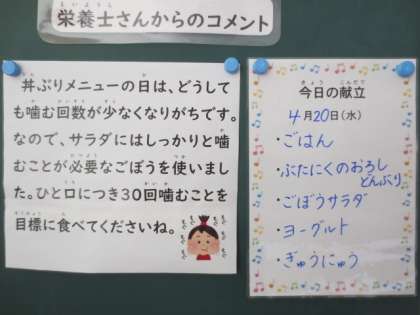 栄養士さんからのコメント
丼ぶりメニューの日は、どうして
も噛む回数が少なくなりがちです。
なので、サラダにはしっかりと噛
むことが必要なごぼうを使いまし
た。ひと口につき30回噛むことを
目標に食べてくださいね。
今日の献立
4月20日(水)
・ごはん
・ぶたにくのおろし
どんぶり
・ごぼうサラダ
・ヨーグルト
・ぎゅうにゅう